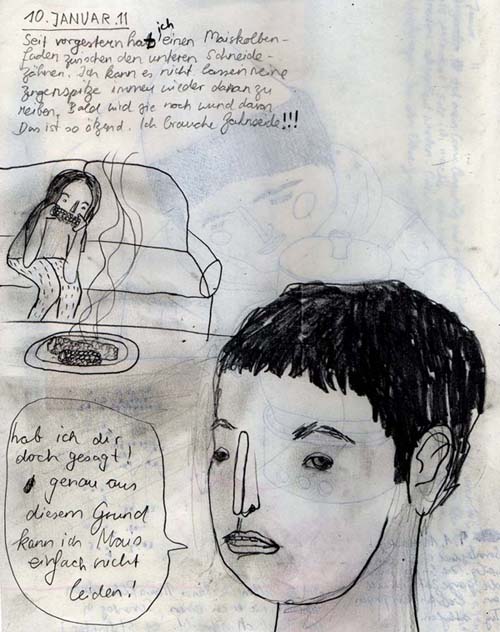 10. JANUAR. 11
Seit vorgestern hab ich einen Maiskolben-
faden zwischen den unteren Schneide-
zähnen. Ich kann es nicht lassen meine
Zungenspitze immer wieder daran zu
reiben, Bald wird sie noch wund davon
Das ist so ätzend. Ich brauche Zahnseide!!!
hab ich dir
doch gesagt!
genau aus
diesem Grund
kann ich Mais
einfach nicht
leiden!